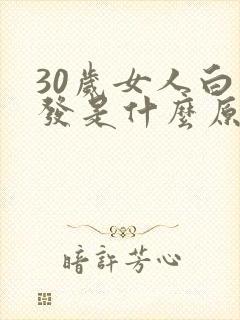 30歲女人白
發是什麼原
暗許芳心